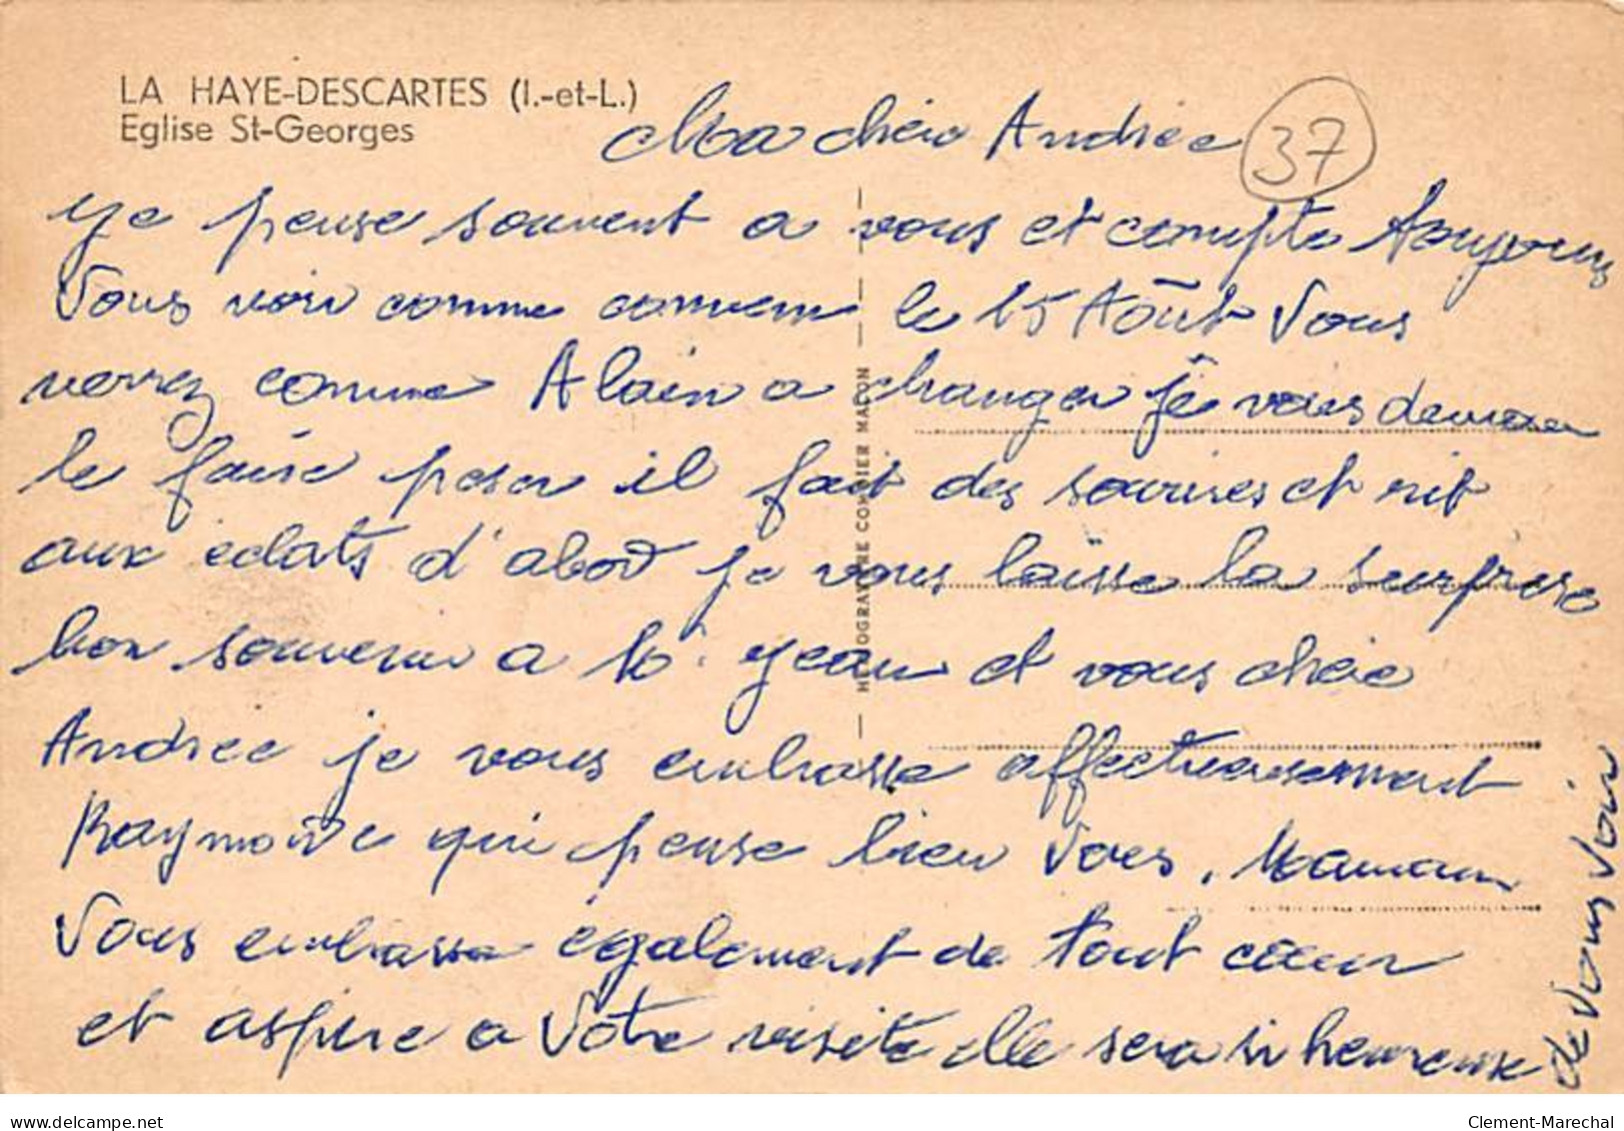 LA HAYE-DESCARTES (I.-et-L.)
Eglise St-Georges
37
Ma chère Andrée
je pense souvent a vous et compte toujours
Vous voir comme convenu le 15 Août Vous
verrez comme Alain a changer je vais demain
le faire peser il fait des sourires et rit
aux éclats d'abord je vous laisse la surprise
bon souvenir a Mr Jean et vous chère
Andrée je vous embrasse affectueusement
Raymonde qui pense bien Vous. Maman
Vous embrasse également de tout cœur
et aspire a Votre visite elle sera si heureuse
de Vous Voir
HELIOGRAVURE COMBIER MACON
delcampe.net
Clement-Marechal